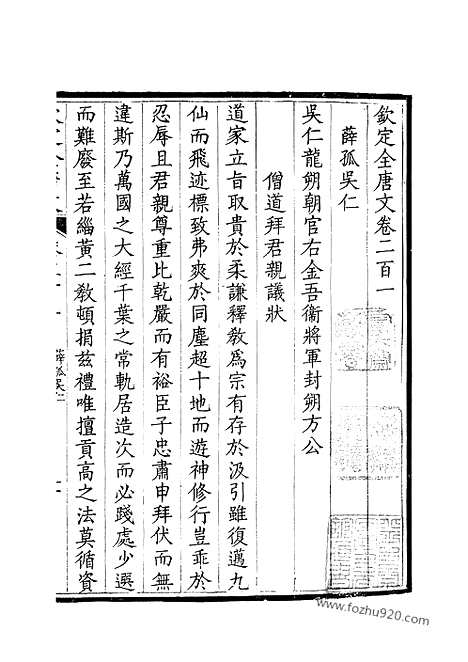 欽定全唐文卷二百一
薛孤吳仁
吳仁龍朔朝官右金吾衞將軍封朔方公
僧道拜君親議狀
道家立旨取貴於柔謙釋敎爲宗有存於汲引雖復邁九
仙而飛迹標致弗爽於同塵超十地而遊神修行豈乖於
忍辱且君親尊重比乾嚴而有裕臣子忠肅申拜伏而無
違斯乃萬國之大經千葉之常軌居造次而必踐處少選
而難廢至若緇黃二敎頓捐茲禮唯擅貢高之法莫循資
薛孤吳仁
一
www.fozhu920.com